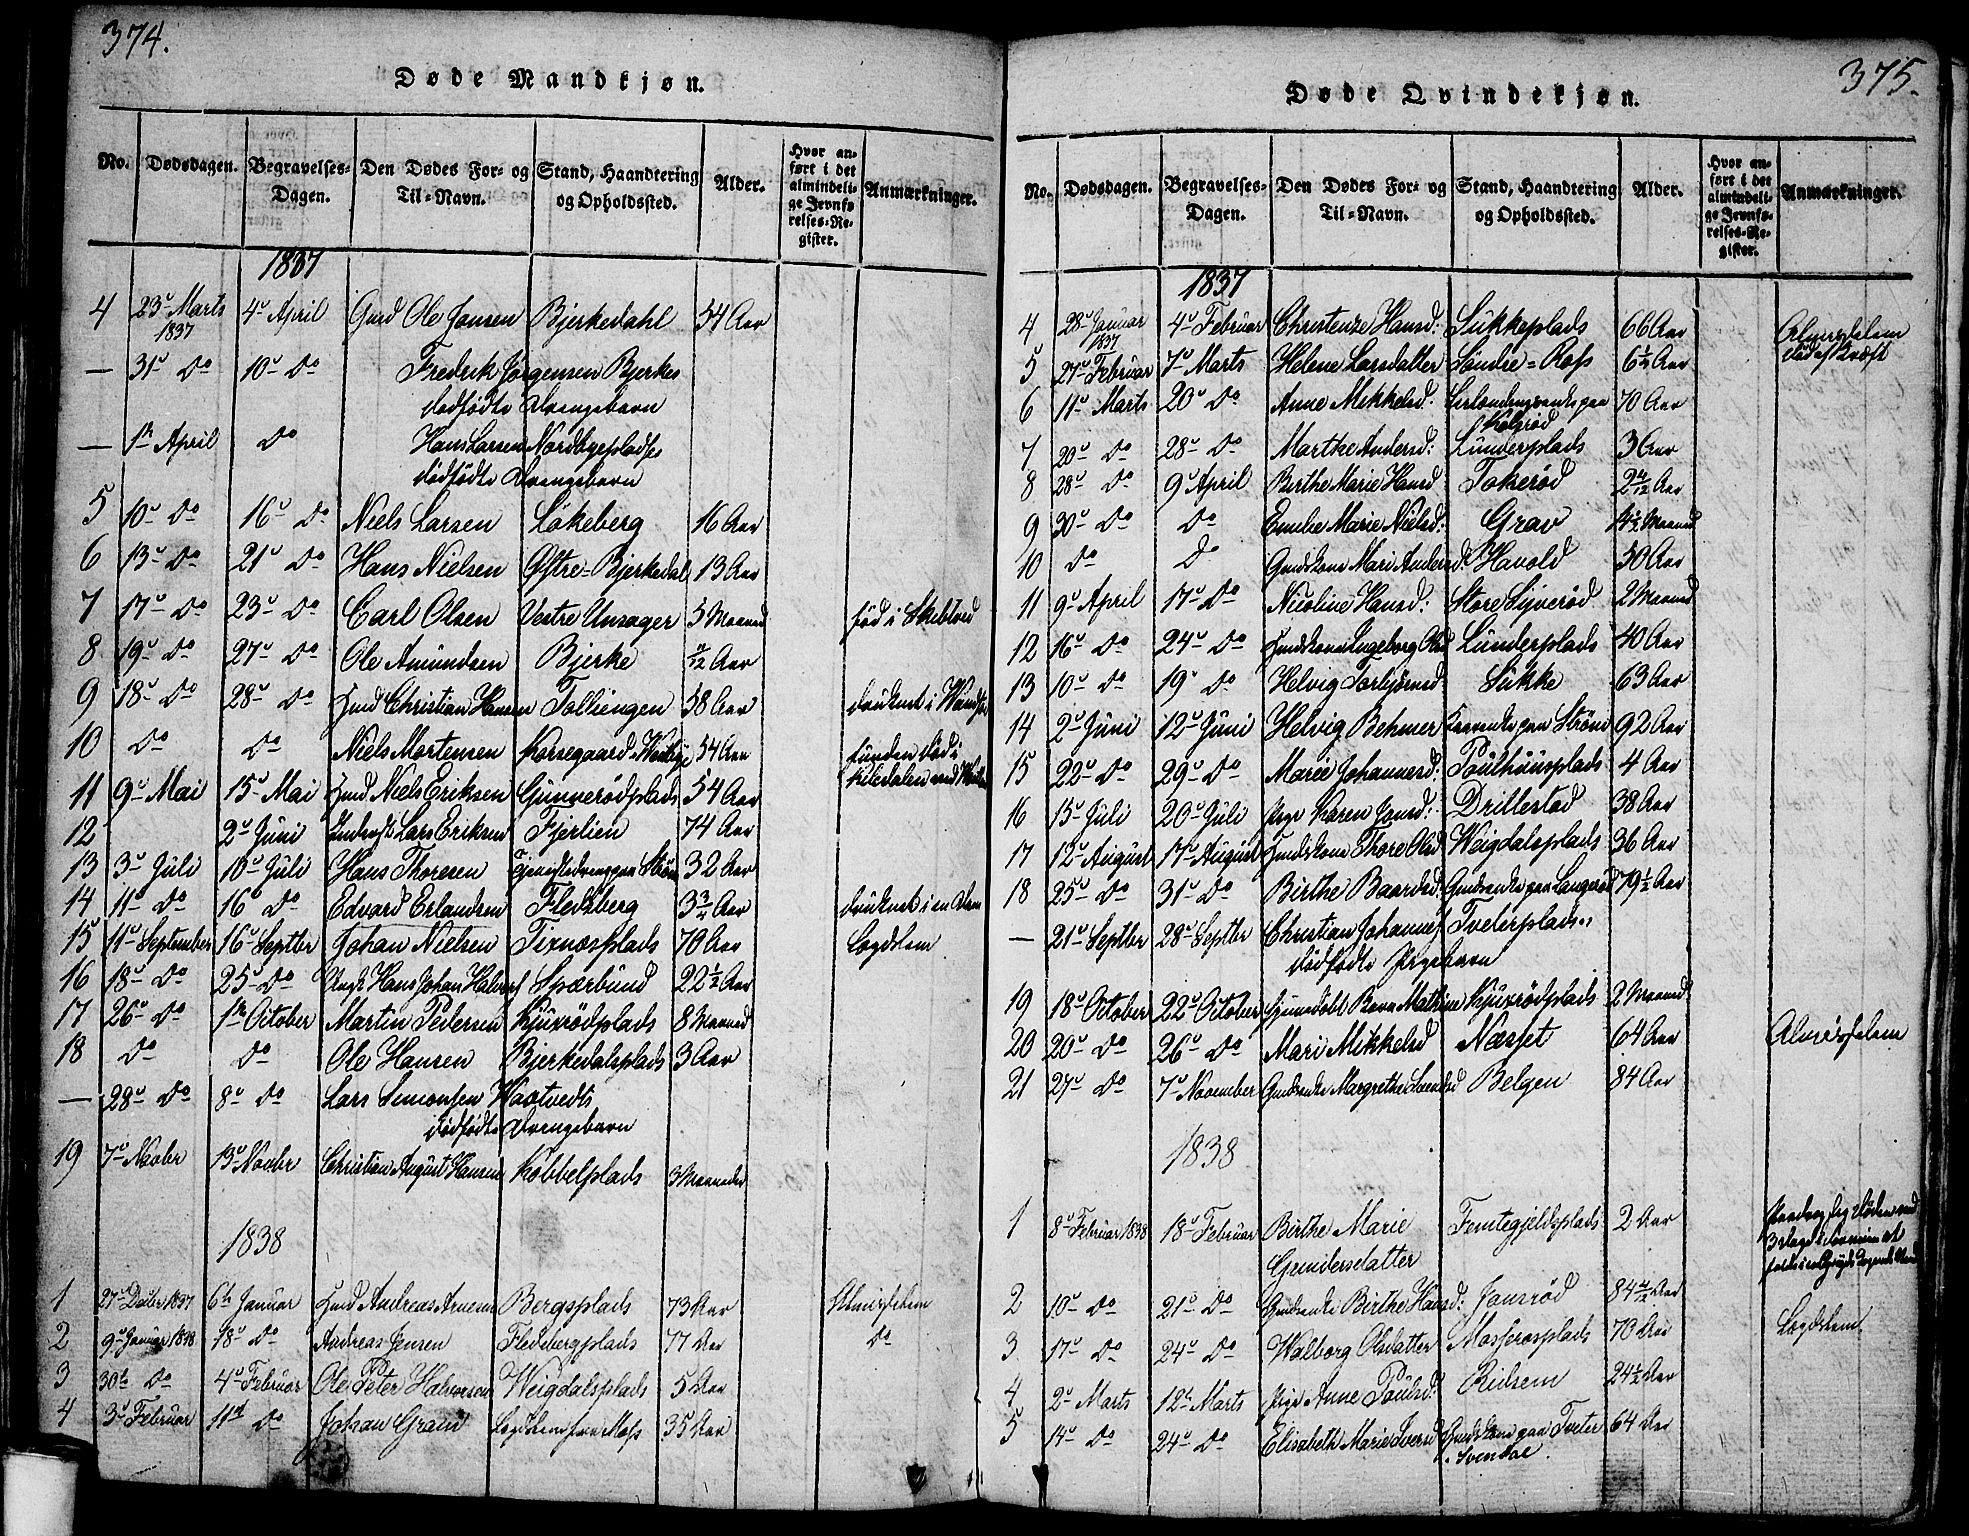 374.
Døde Mandkjøn.
No. Dødsdagen. Begravelses-Dagen. Den Dødes For- og Til-Navn. Stand, Haandtering og Opholdssted. Alder. Hvor anført i det almindelige Jevnførelses-Register. Anmærkninger.
1837
4 23de Marts 1837 4de April Ole Jansen Bjerkedahl 54 Aar
— 31te Do 10de Do Frederik Jørgensen Bjerkes
dødfødte Drengebarn
— 1te April Do Hans Larsen Nordbyepladses
dødfødte Drengebarn
5 10de Do 16de Do Niels Larsen Løkeberg 16 Aar
6 13de Do 21de Do Hans Nielsen Østre=Bjerkedal 13 Aar
7 17de Do 23de Do Carl Olsen Vestre Unsager 5 Maaned født i Skibtved
8 19de Do 27de Do Ole Amundsen Bjerke Aar
9 18de Do 28de Do Christian Hansen Tolliengen 58 Aar druknet i
10 Do Do Niels Mortensen Korsegaard i Westbye 54 Aar funden død i
11 9de Mai 15de Mai Niels Eriksen Gunnerødplads 54 Aar
12 2de Juni Lars Eriksen Fjerlien 74 Aar
13 3de Juli 10de Juli Hans Thoresen paa Strøm 32 Aar
14 11te Do 16de Do Edvard Erlandsen Fledsberg 3 3/4 Aar druknet i en
15 11te September 16de Septbr Johan Nielsen Tixnæsplads 70 Aar Lægdslem
16 18de Do 25de Do Ungk Hans Johan Halvors Spærbund 22 1/2 Aar
17 26de Do 1te October Martin Pedersen Kjuxrødplads 8 Maaned
18 Do Do Ole Hansen Bjerkedalsplads 3 Aar
— 28de Do 8de Do Lars Simonsen Wastvedts
dødfødte Drengebarn
19 7de Novbr 13de Novbr Christian August Hansen Kobbelplads 3 Maaneder
1838
1 27de Decbr 1837 6te Januar Andreas Bergsplads 73 Aar Almisselem
2 9de Januar 1838 18de Do Andreas Jensen Fledsbergplads 77 Aar Do
3 30te Do 4de Februar Ole Peter Halvorsen Weigdalsplads 5 Aar
4 3de Februar 11te Do Johan Gram Moss 35 Aar
375.
Døde Qvindekjøn.
No. Dødsdagen. Begravelses-Dagen. Den Dødes For- og Til-Navn. Stand, Haandtering og Opholdssted. Alder. Hvor anført i det almindelige Jevnførelses-Register. Anmærkninger.
1837
4 28de Januar 1837 4de Februar Christenze Hansd: Sukkeplads 66 Aar Almisselem
død af Kræft
5 27de Februar 7de Marts Helene Larsdatter Søndre=Ross 6 1/2 Aar
6 11te Marts 20de Do Anne Mikkelsd: paa 70 Aar
7 20de Do 28de Do Marthe Andersd: Lunderplads 3 Aar
8 28de Do 9de April Birthe Marie Hansd: Tokerød Aar
9 30te Do Do Marie Nielsd: Grav Maaned
10 Do Do Mari Andersd. Havold 50 Aar
11 9de April 17de Do Nicoline Hansd: Store Syverød 2 Maaned
12 16de Do 24de Do Ingeborg Olsd Lunderplads 40 Aar
13 10de Do 19de Do Helvig Torbjørnsd: Sukke 63 Aar
14 2de Juni 12te Juni Helvig Behmer paa Strøm 92 Aar
15 22de Do 29de Do Marie Johannesd: Poulhuusplads 4 Aar
16 15de Juli 20de Juli Pige Karen Jonsd: Drillestad 38 Aar
17 12te August 17de August Thore Olsd Weigdalsplads 36 Aar
18 25de Do 31te Do Birthe Baardsd: paa Langerød 79 1/2 Aar
— 21de Septbr 28de Septbr Christian Johanness Tveterplads
dødfødte Pigebarn
19 18de October 22de October Mathine Kjuxrødplads 2 Maaned
20 20de Do 26de Do Mari Mikkelsd Næsset 64 Aar Almisselem
21 27de Do 7de November Margrethe Svendsd Belgen 84 Aar
1838
1 8de Februar 1838 18de Februar Birthe Marie Femtegjeldsplads 2 Aar
Gundersdatter
2 10de Do 21de Do Birthe Hansd: Jonsrød 84 Aar
3 17de Do 24de Do Walborg Olsdatter Mosserosplads 70 Aar Lægdslem
4 2de Marts 12te Marts Pige Anne Poulsd: Ridsem 24 1/2 Aar
5 14de Do 24de Do Elisabeth Marie Iversd paa Tveter 64 Aar
i Svendal.